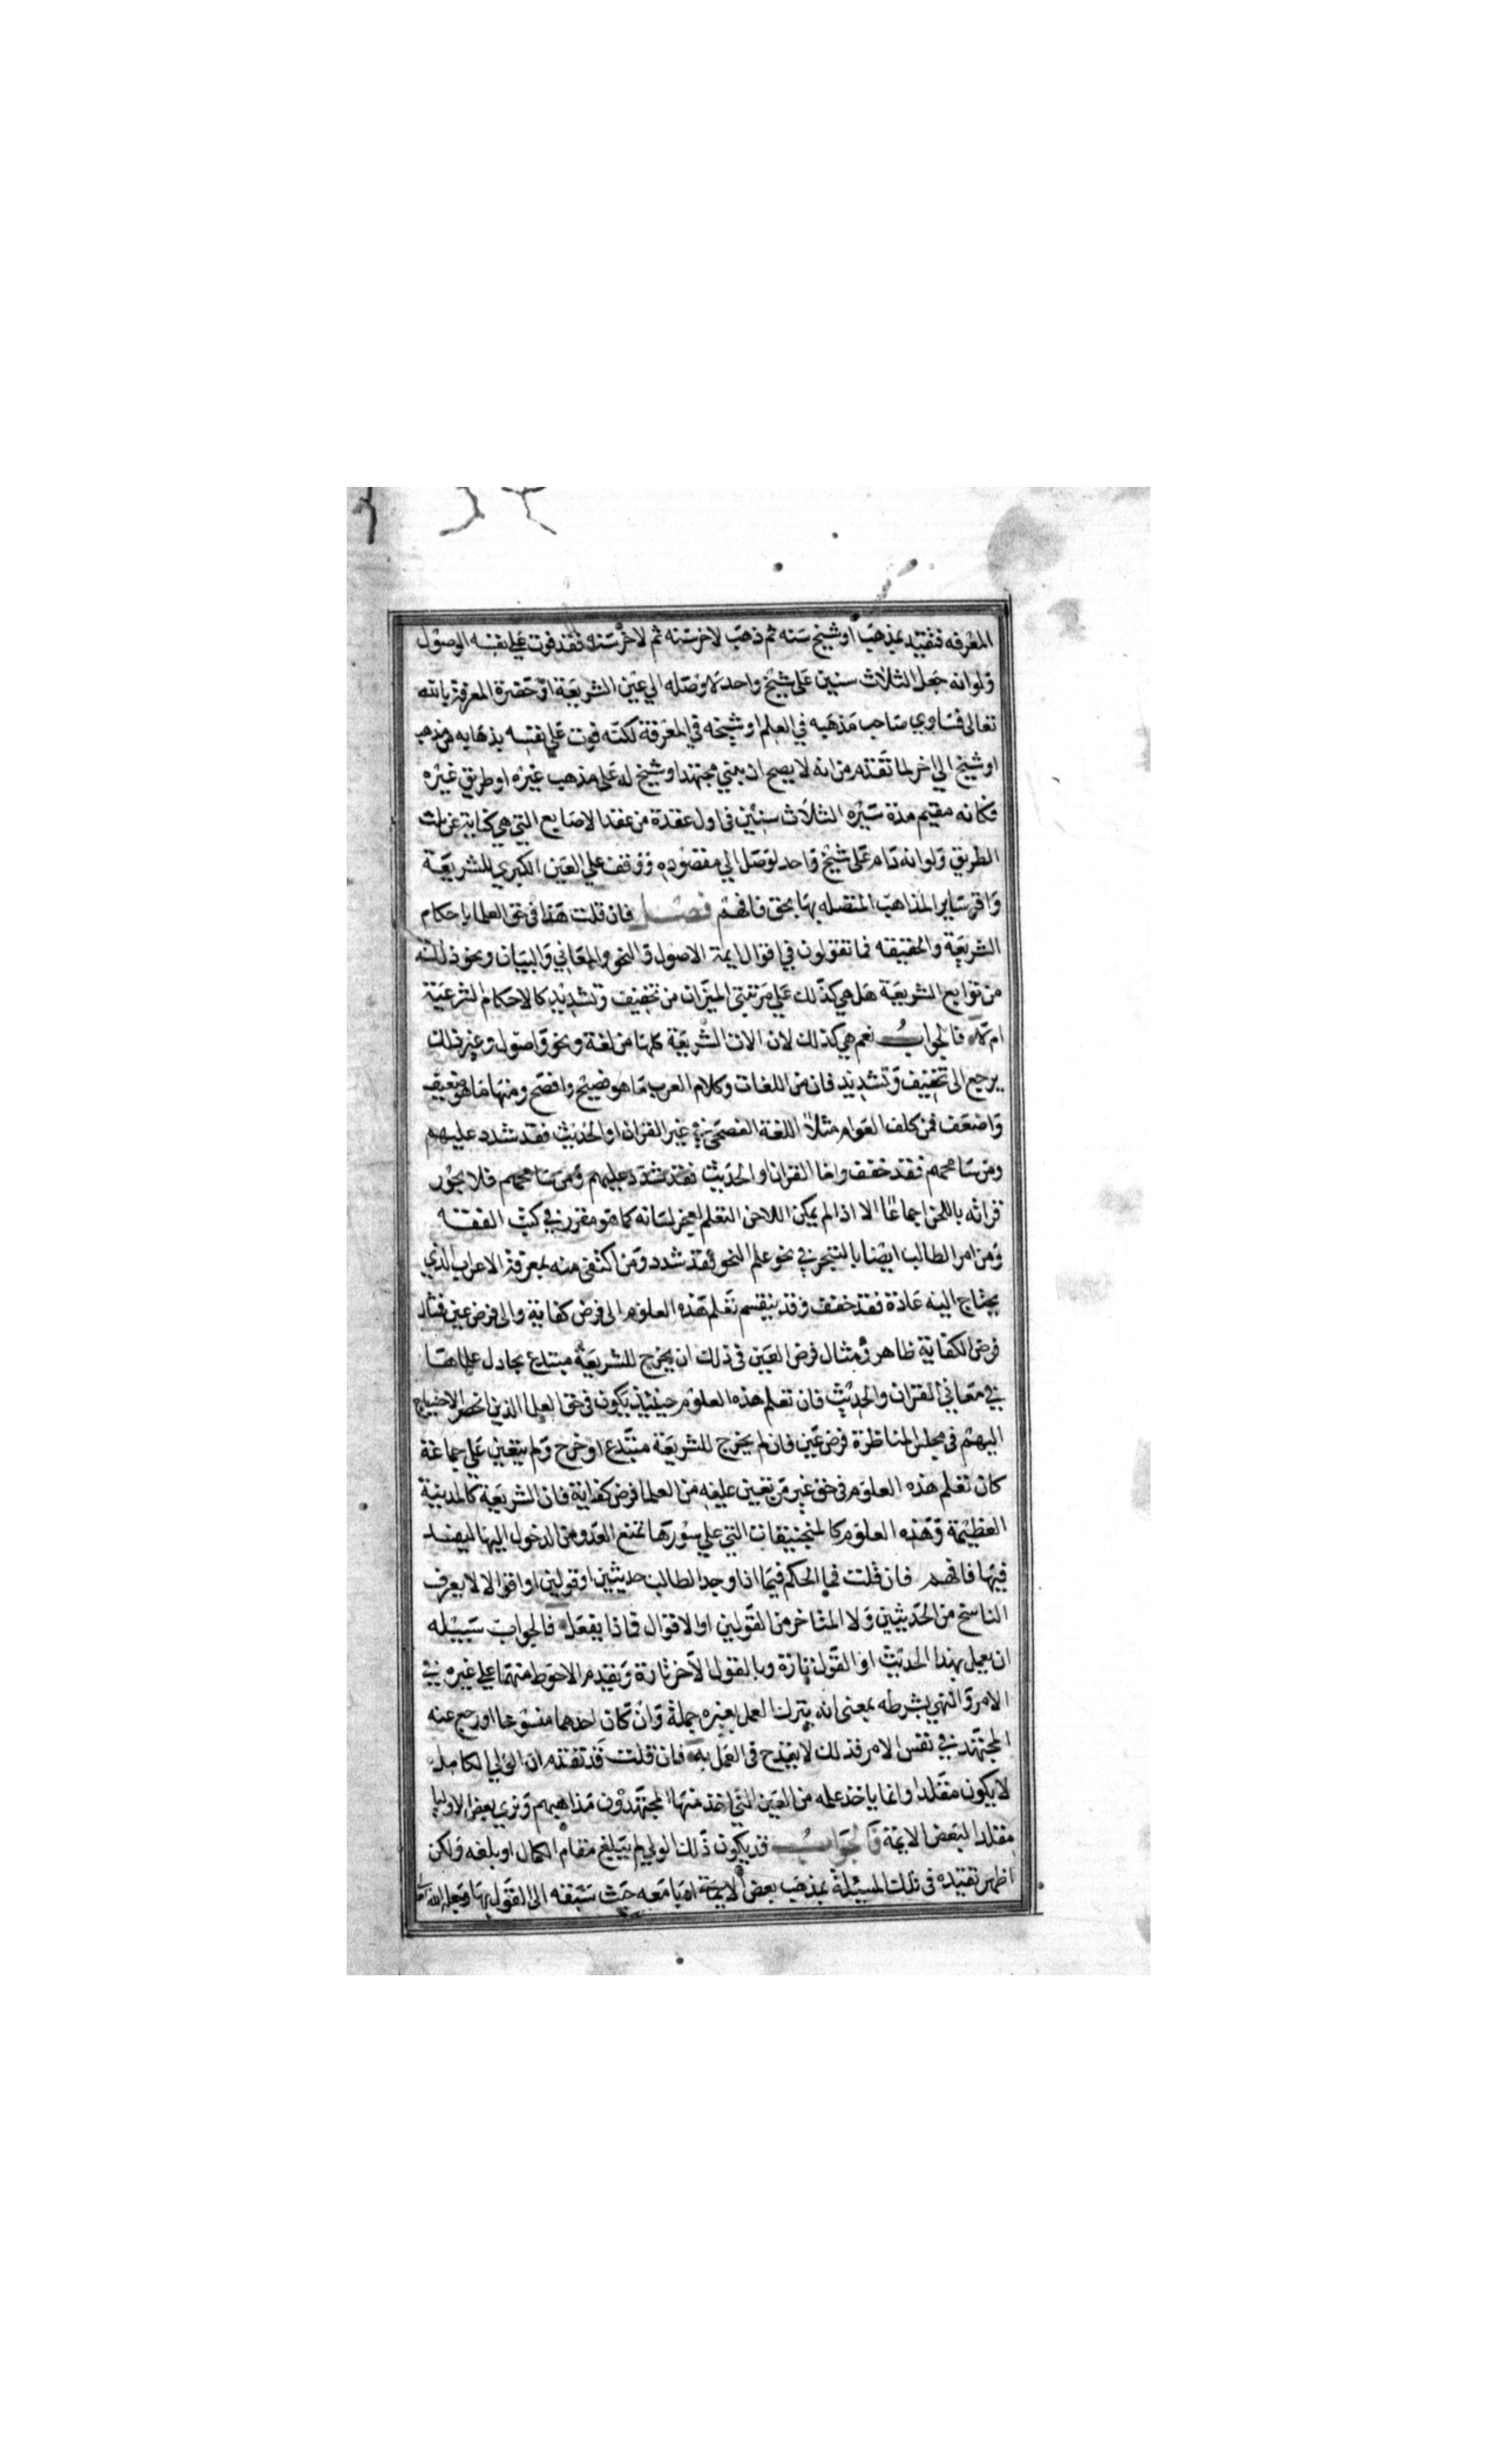 المعرفه فتقيد بمذهب او شيخ سنه ثم ذهب لاخر سنه ثم لاخر سنه فقد فوت على نفسه الوصول
ولو انه جعل الثلاث سنين على شيخ واحد لاوصله الي عين الشريعة او حضرة المعرفة بالله
تعالى فساوي صاحب مذهبه في العلم او شيخه في المعرفة لكنه فوت علي نفسه بذهابه من مذهب
او شيخ الي اخر لما تقدم من انه لا يصح ان يبني مجتهد او شيخ له على مذهب غيره او طريق غيره
فكانه مقيم مدة سيره الثلاث سنين في اول عقدة من عقد الاصابع التي هي كناية عن تلك
الطريق ولو انه دام على شيخ واحد لوصل الي مقصوده ووقف علي العين الكبري للشريعة
واقر ساير المذاهب المتصله بها بحق فافهم فصل فان قلت هذا في حق العلما باحكام
الشريعة والحقيقه فما تقولون في اقوال ايمة الاصول والنحو والمعاني والبيان ونحو ذلك
من توابع الشريعة هل هي كذلك علي مرتبتي الميزان من تخفيف وتشديد كالاحكام الشرعية
ام لا فالجواب نعم هي كذلك لان الات الشريعة كلها من لغة ونحو واصول وغير ذلك
يرجع الى تخفيف وتشديد فان من اللغات وكلام العرب ما هو فصيح وافصح ومنها ما هو ضعيف
واضعف فمن كلف العوام مثلا اللغة الفصحى في غير القران او الحديث فقد شدد عليهم
ومن سامحهم فقد خفف واما القران او الحديث فقد شدد عليهم ومن سامحهم فلا يجوز
قراته باللحن اجماعا الا اذا لم يمكن اللاحن التعلم لعجز لسانه كما هو مقرر في كتب الفقه
ومن امر الطالب ايضا بالتبحر في نحو علم النحو فقد شدد ومن اكتفى منه بمعرفة الاعراب الذي
يحتاج اليه عادة فقد خفف وقد ينقسم تعلم هذه العلوم الى فرض كفاية والى فرض عين فمثال
فرض الكفاية ظاهر ومثال فرض العين في ذلك ان يخرج للشريعة مبتدع يجادل علماها
في معاني القران والحديث فان تعلم هذه العلوم حينئذ يكون في حق العلما الذين انحصر الاحتياج
اليهم في مجلس المناظرة فرض عين فان لم يخرج للشريعة مبتدع او خرج ولم يتعين على جماعة
كان تعلم هذه العلوم في حق غير من تعين عليه من العلما فرض كفاية فان الشريعة كالمدينة
العظيمة وهذه العلوم كالمنجنيقات التي علي سورها تمنع العدو من الدخول اليها ليفسد
فيها فافهم فان قلت فما الحكم فيما اذا وجد الطالب حديثين او قولين او اقوالا لا يعرف
الناسخ من الحديثين ولا المتاخر من القولين او الاقوال فماذا يفعل فالجواب سبيله
ان يعمل بهذا الحديث او القول تارة وبالقول الاخر تارة ويقدم الاحوط منهما علي غيره في
الامر والنهي بشرطه بمعنى انه يترك العمل بغيره جملة وان كان احدهما منسوخا او رجع عنه
المجتهد في نفس الامر فذلك لا يقدح في العمل به فان قلت قد تقدم ان الولي الكامل
لا يكون مقلدا وانما ياخذ علمه من العين التي اخذ منها المجتهدون مذاهبهم ونري بعض الاوليا
مقلدا لبعض الايمة فالجواب قد يكون ذلك الولي لم يبلغ مقام الكمال او بلغه ولكن
اظهر تقيده في تلك المسئلة بمذهب بعض الايمة ادبا معه حيث سبقه الى القول بها وجعله الله